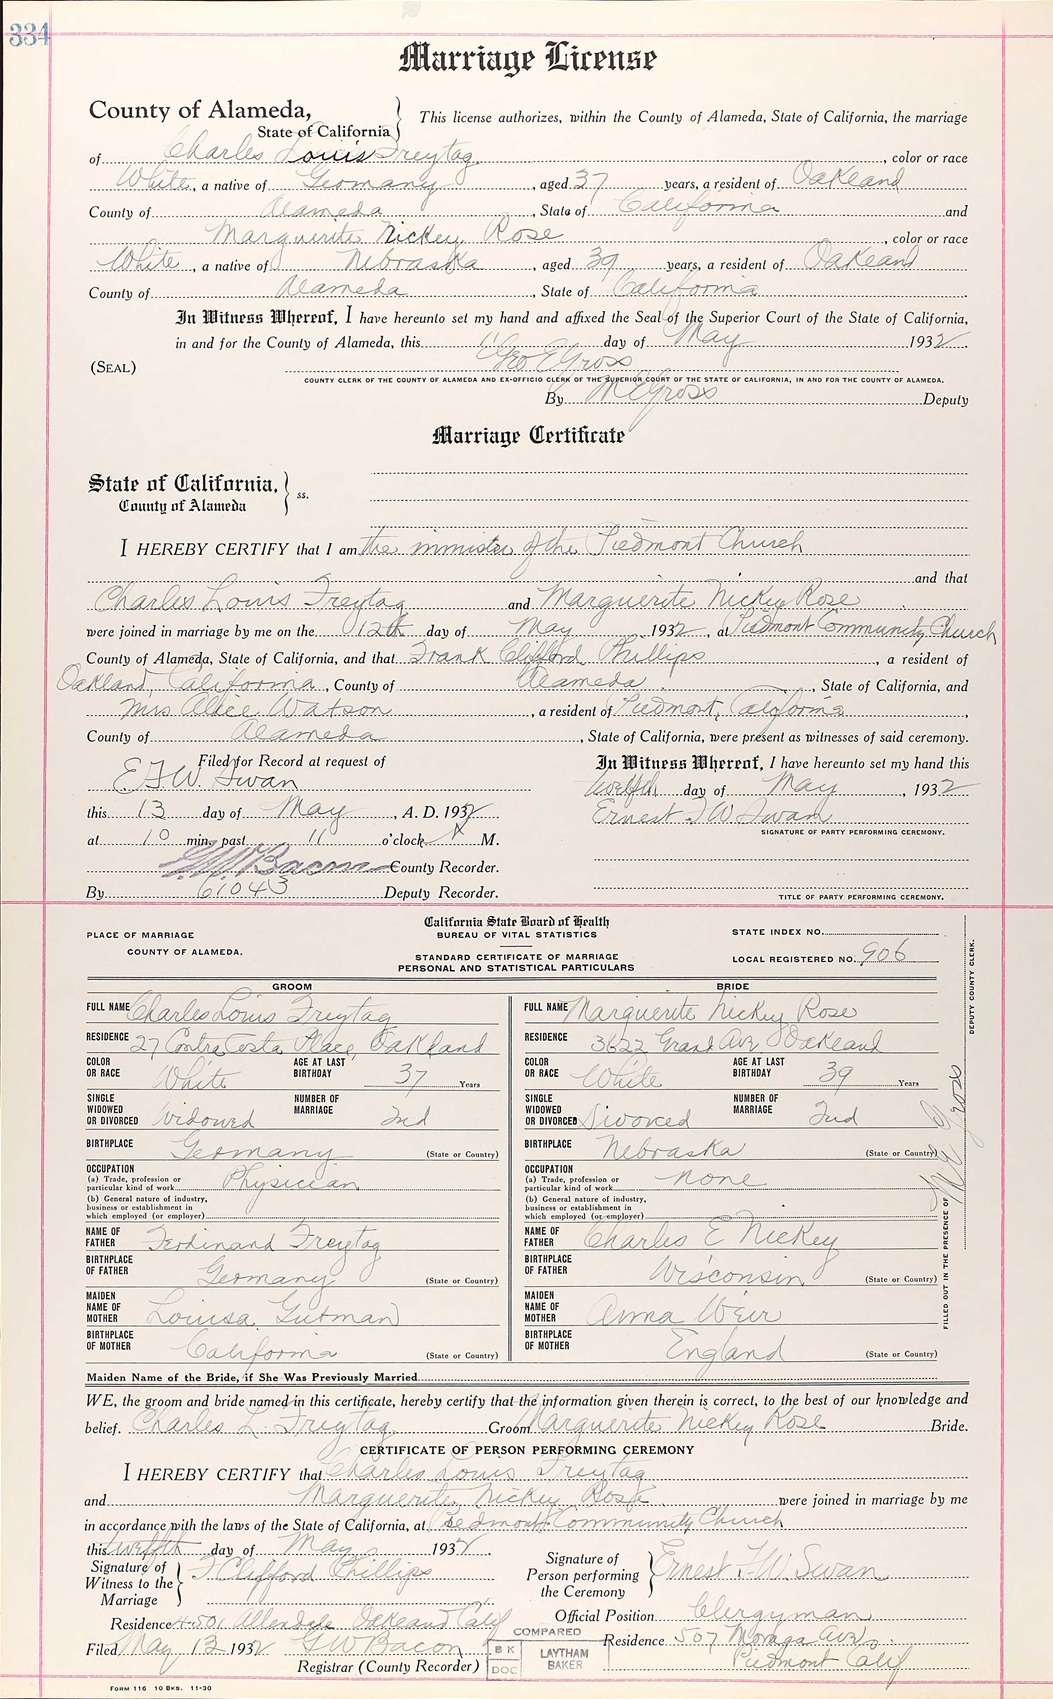 334
Marriage License
County of Alameda,
State of California
This license authorizes, within the County of Alameda, State of California, the marriage
of Charles Louis Freytag, color or race
White, a native of Germany, aged 37 years, a resident of Oakland
County of Alameda, State of California and
Marguerite Nickey Rose, color or race
White, a native of Nebraska, aged 39 years, a resident of Oakland
County of Alameda, State of California.
In Witness Whereof, I have hereunto set my hand and affixed the Seal of the Superior Court of the State of California,
in and for the County of Alameda, this day of May 1932.
Geo E Gross
(SEAL)
COUNTY CLERK OF THE COUNTY OF ALAMEDA AND EX-OFFICIO CLERK OF THE SUPERIOR COURT OF THE STATE OF CALIFORNIA, IN AND FOR THE COUNTY OF ALAMEDA.
By M E Gross Deputy
Marriage Certificate
State of California,
County of Alameda
ss.
I HEREBY CERTIFY that I am the minister of the Piedmont Church
and that
Charles Louis Freytag and Marguerite Nickey Rose
were joined in marriage by me on the 12th day of May, 1932, at Piedmont Community Church
County of Alameda, State of California, and that Frank Clifford Phillips, a resident of
Oakland, California, County of Alameda, State of California, and
Mrs Alice Watson, a resident of Piedmont, California,
County of Alameda, State of California, were present as witnesses of said ceremony.
Filed for Record at request of
E. F. W. Swan
this 13 day of May, A. D. 1932
at 10 min. past 11 o'clock A M.
G. W. Bacon County Recorder.
By 61043 Deputy Recorder.
In Witness Whereof, I have hereunto set my hand this
twelfth day of May, 1932
Ernest F W Swan
SIGNATURE OF PARTY PERFORMING CEREMONY.
TITLE OF PARTY PERFORMING CEREMONY.
PLACE OF MARRIAGE
COUNTY OF ALAMEDA.
California State Board of Health
BUREAU OF VITAL STATISTICS
STANDARD CERTIFICATE OF MARRIAGE
PERSONAL AND STATISTICAL PARTICULARS
STATE INDEX NO.
LOCAL REGISTERED NO. 906
GROOM
FULL NAME Charles Louis Freytag
RESIDENCE 27 Contra Costa Place, Oakland
COLOR OR RACE White AGE AT LAST BIRTHDAY 37 Years
SINGLE WIDOWED OR DIVORCED Widowed NUMBER OF MARRIAGE 2nd
BIRTHPLACE Germany (State or Country)
OCCUPATION
(a) Trade, profession or particular kind of work Physician
(b) General nature of industry, business or establishment in which employed (or employer)
NAME OF FATHER Ferdinand Freytag
BIRTHPLACE OF FATHER Germany (State or Country)
MAIDEN NAME OF MOTHER Louisa Gutman
BIRTHPLACE OF MOTHER California (State or Country)
BRIDE
FULL NAME Marguerite Nickey Rose
RESIDENCE 3622 Grand Ave Oakland
COLOR OR RACE White AGE AT LAST BIRTHDAY 39 Years
SINGLE WIDOWED OR DIVORCED Divorced NUMBER OF MARRIAGE 2nd
BIRTHPLACE Nebraska (State or Country)
OCCUPATION
(a) Trade, profession or particular kind of work none
(b) General nature of industry, business or establishment in which employed (or employer)
NAME OF FATHER Charles E Nickey
BIRTHPLACE OF FATHER Wisconsin (State or Country)
MAIDEN NAME OF MOTHER Anna Weir
BIRTHPLACE OF MOTHER England (State or Country)
FILLED OUT IN THE PRESENCE OF M E Gross DEPUTY COUNTY CLERK.
Maiden Name of the Bride, if She Was Previously Married
WE, the groom and bride named in this certificate, hereby certify that the information given therein is correct, to the best of our knowledge and
belief. Charles L. Freytag Groom Marguerite Nickey Rose Bride.
CERTIFICATE OF PERSON PERFORMING CEREMONY
I HEREBY CERTIFY that Charles Louis Freytag
and Marguerite Nickey Rose were joined in marriage by me
in accordance with the laws of the State of California, at Piedmont Community Church
this twelfth day of May 1932.
Signature of Witness to the Marriage F Clifford Phillips
Residence 4501 Allendale Oakland Calif
Filed May 13 1932 G W Bacon
Registrar (County Recorder)
Signature of Person performing the Ceremony Ernest F W Swan
Official Position Clergyman
Residence 507 Moraga Ave
Piedmont Calif
COMPARED
BK
DOC
LAYTHAM
BAKER
FORM 116 10 BKS. 11-30